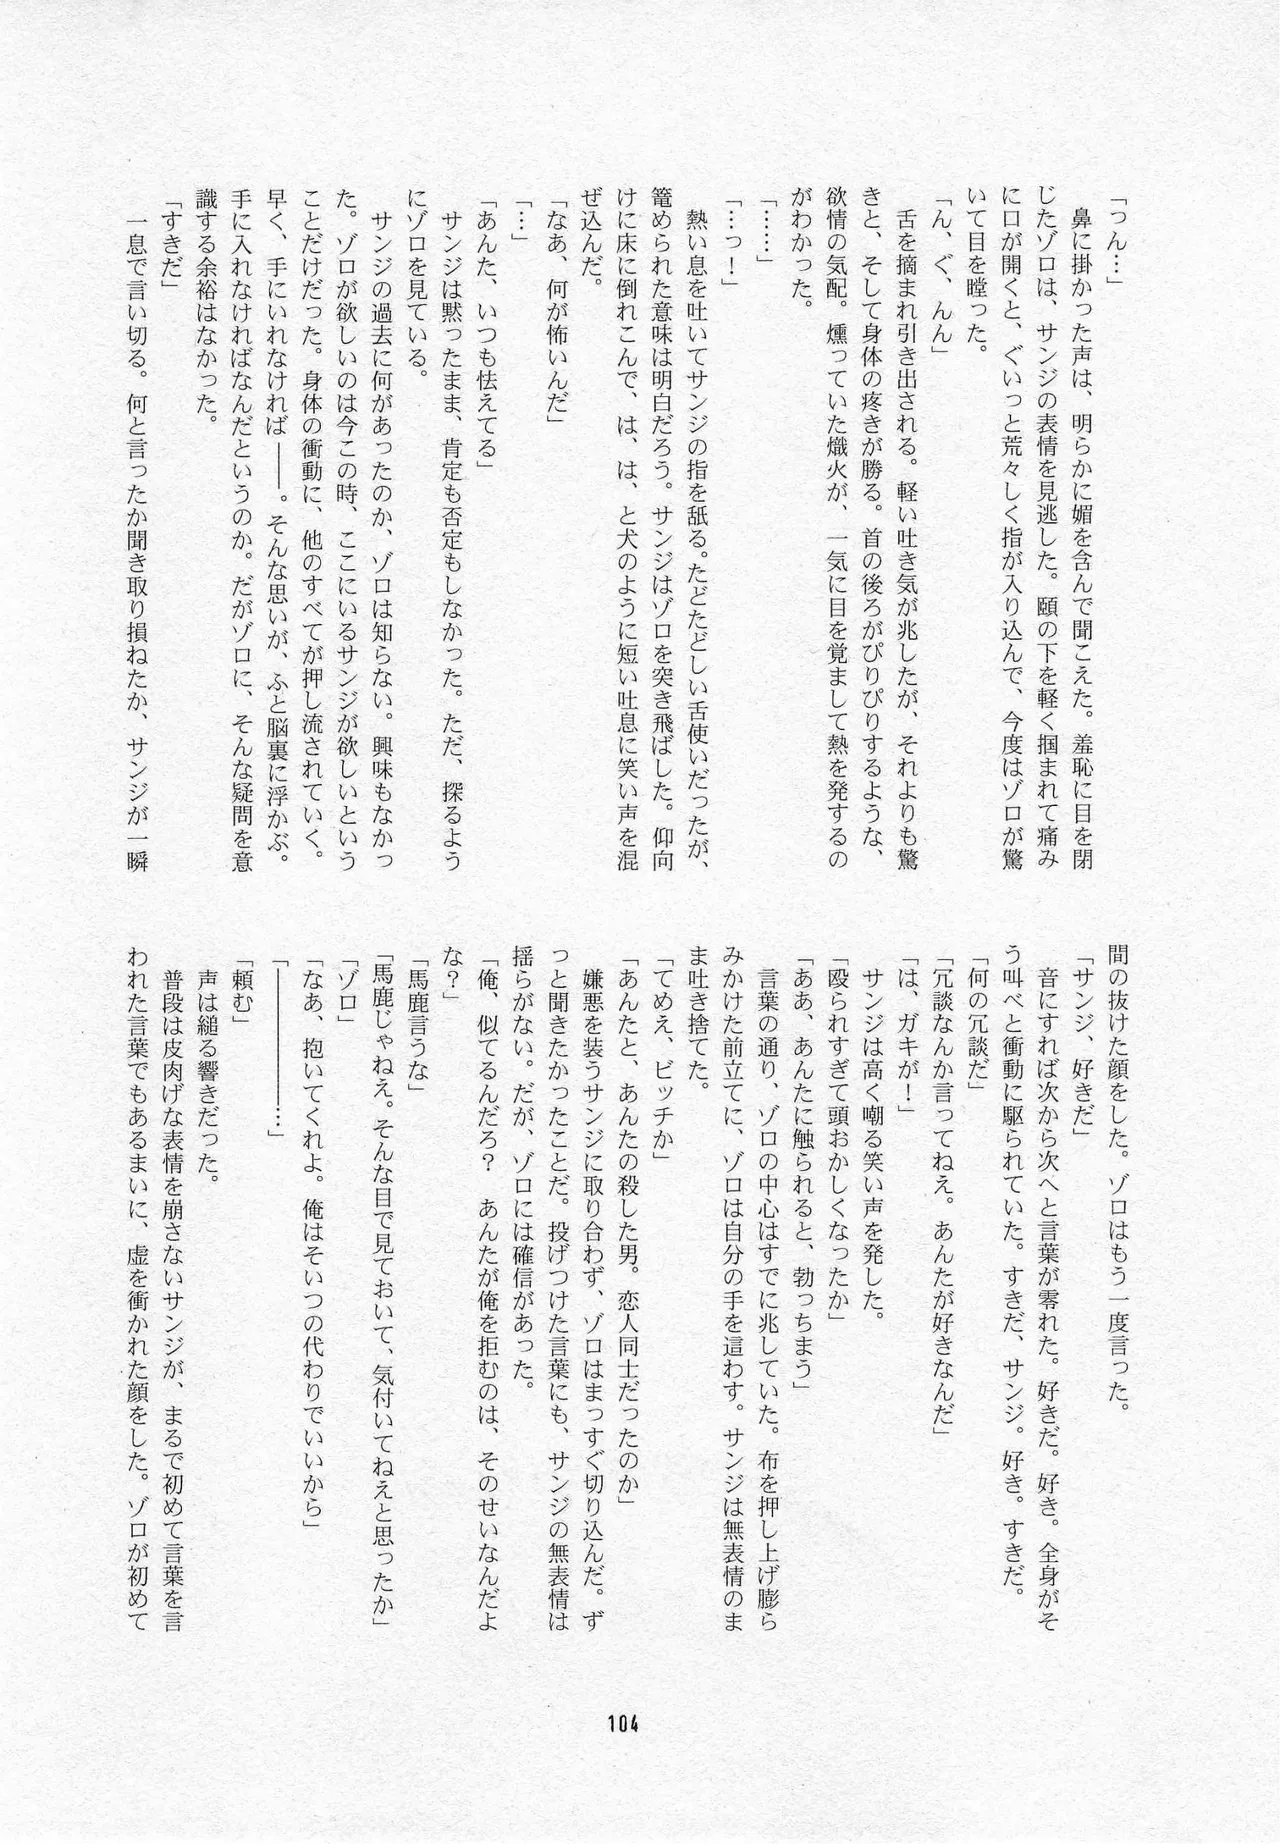 「っん…」
鼻に掛かった声は、明らかに媚を含んで聞こえた。羞恥に目を閉
じたゾロは、サンジの表情を見逃した。頤の下を軽く掴まれて痛み
に口が開くと、ぐいっと荒々しく指が入り込んで、今度はゾロが驚
いて目を瞠った。
「ん、ぐ、んん」
舌を摘まれ引き出される。軽い吐き気が兆したが、それよりも驚
きと、そして身体の疼きが勝る。首の後ろがぴりぴりするような、
欲情の気配。燻っていた熾火が、一気に目を覚まして熱を発するの
がわかった。
「……」
「…っ！」
熱い息を吐いてサンジの指を舐る。たどたどしい舌使いだったが、
篭められた意味は明白だろう。サンジはゾロを突き飛ばした。仰向
けに床に倒れこんで、は、は、と犬のように短い吐息に笑い声を混
ぜ込んだ。
「なあ、何が怖いんだ」
「…」
「あんた、いつも怯えてる」
サンジは黙ったまま、肯定も否定もしなかった。ただ、探るよう
にゾロを見ている。
サンジの過去に何があったのか、ゾロは知らない。興味もなかっ
た。ゾロが欲しいのは今この時、ここにいるサンジが欲しいという
ことだけだった。身体の衝動に、他のすべてが押し流されていく。
早く、手にいれなければ――。そんな思いが、ふと脳裏に浮かぶ。
手に入れなければなんだというのか。だがゾロに、そんな疑問を意
識する余裕はなかった。
「すきだ」
一息で言い切る。何と言ったか聞き取り損ねたか、サンジが一瞬
間の抜けた顔をした。ゾロはもう一度言った。
「サンジ、好きだ」
音にすれば次から次へと言葉が零れた。好きだ。好き。全身がそ
う叫べと衝動に駆られていた。すきだ、サンジ。好き。すきだ。
「何の冗談だ」
「冗談なんか言ってねえ。あんたが好きなんだ」
「は、ガキが！」
サンジは高く嘲る笑い声を発した。
「殴られすぎて頭おかしくなったか」
「ああ、あんたに触られると、勃っちまう」
言葉の通り、ゾロの中心はすでに兆していた。布を押し上げ膨ら
みかけた前立てに、ゾロは自分の手を這わす。サンジは無表情のま
ま吐き捨てた。
「てめえ、ビッチか」
「あんたと、あんたの殺した男。恋人同士だったのか」
嫌悪を装うサンジに取り合わず、ゾロはまっすぐ切り込んだ。ず
っと聞きたかったことだ。投げつけた言葉にも、サンジの無表情は
揺らがない。だが、ゾロには確信があった。
「俺、似てるんだろ？　あんたが俺を拒むのは、そのせいなんだよ
な？」
「馬鹿言うな」
「馬鹿じゃねえ。そんな目で見ておいて、気付いてねえと思ったか」
「ゾロ」
「なあ、抱いてくれよ。俺はそいつの代わりでいいから」
「――――――…」
「頼む」
声は縋る響きだった。
普段は皮肉げな表情を崩さないサンジが、まるで初めて言葉を言
われた言葉でもあるまいに、虚を衝かれた顔をした。ゾロが初めて
104